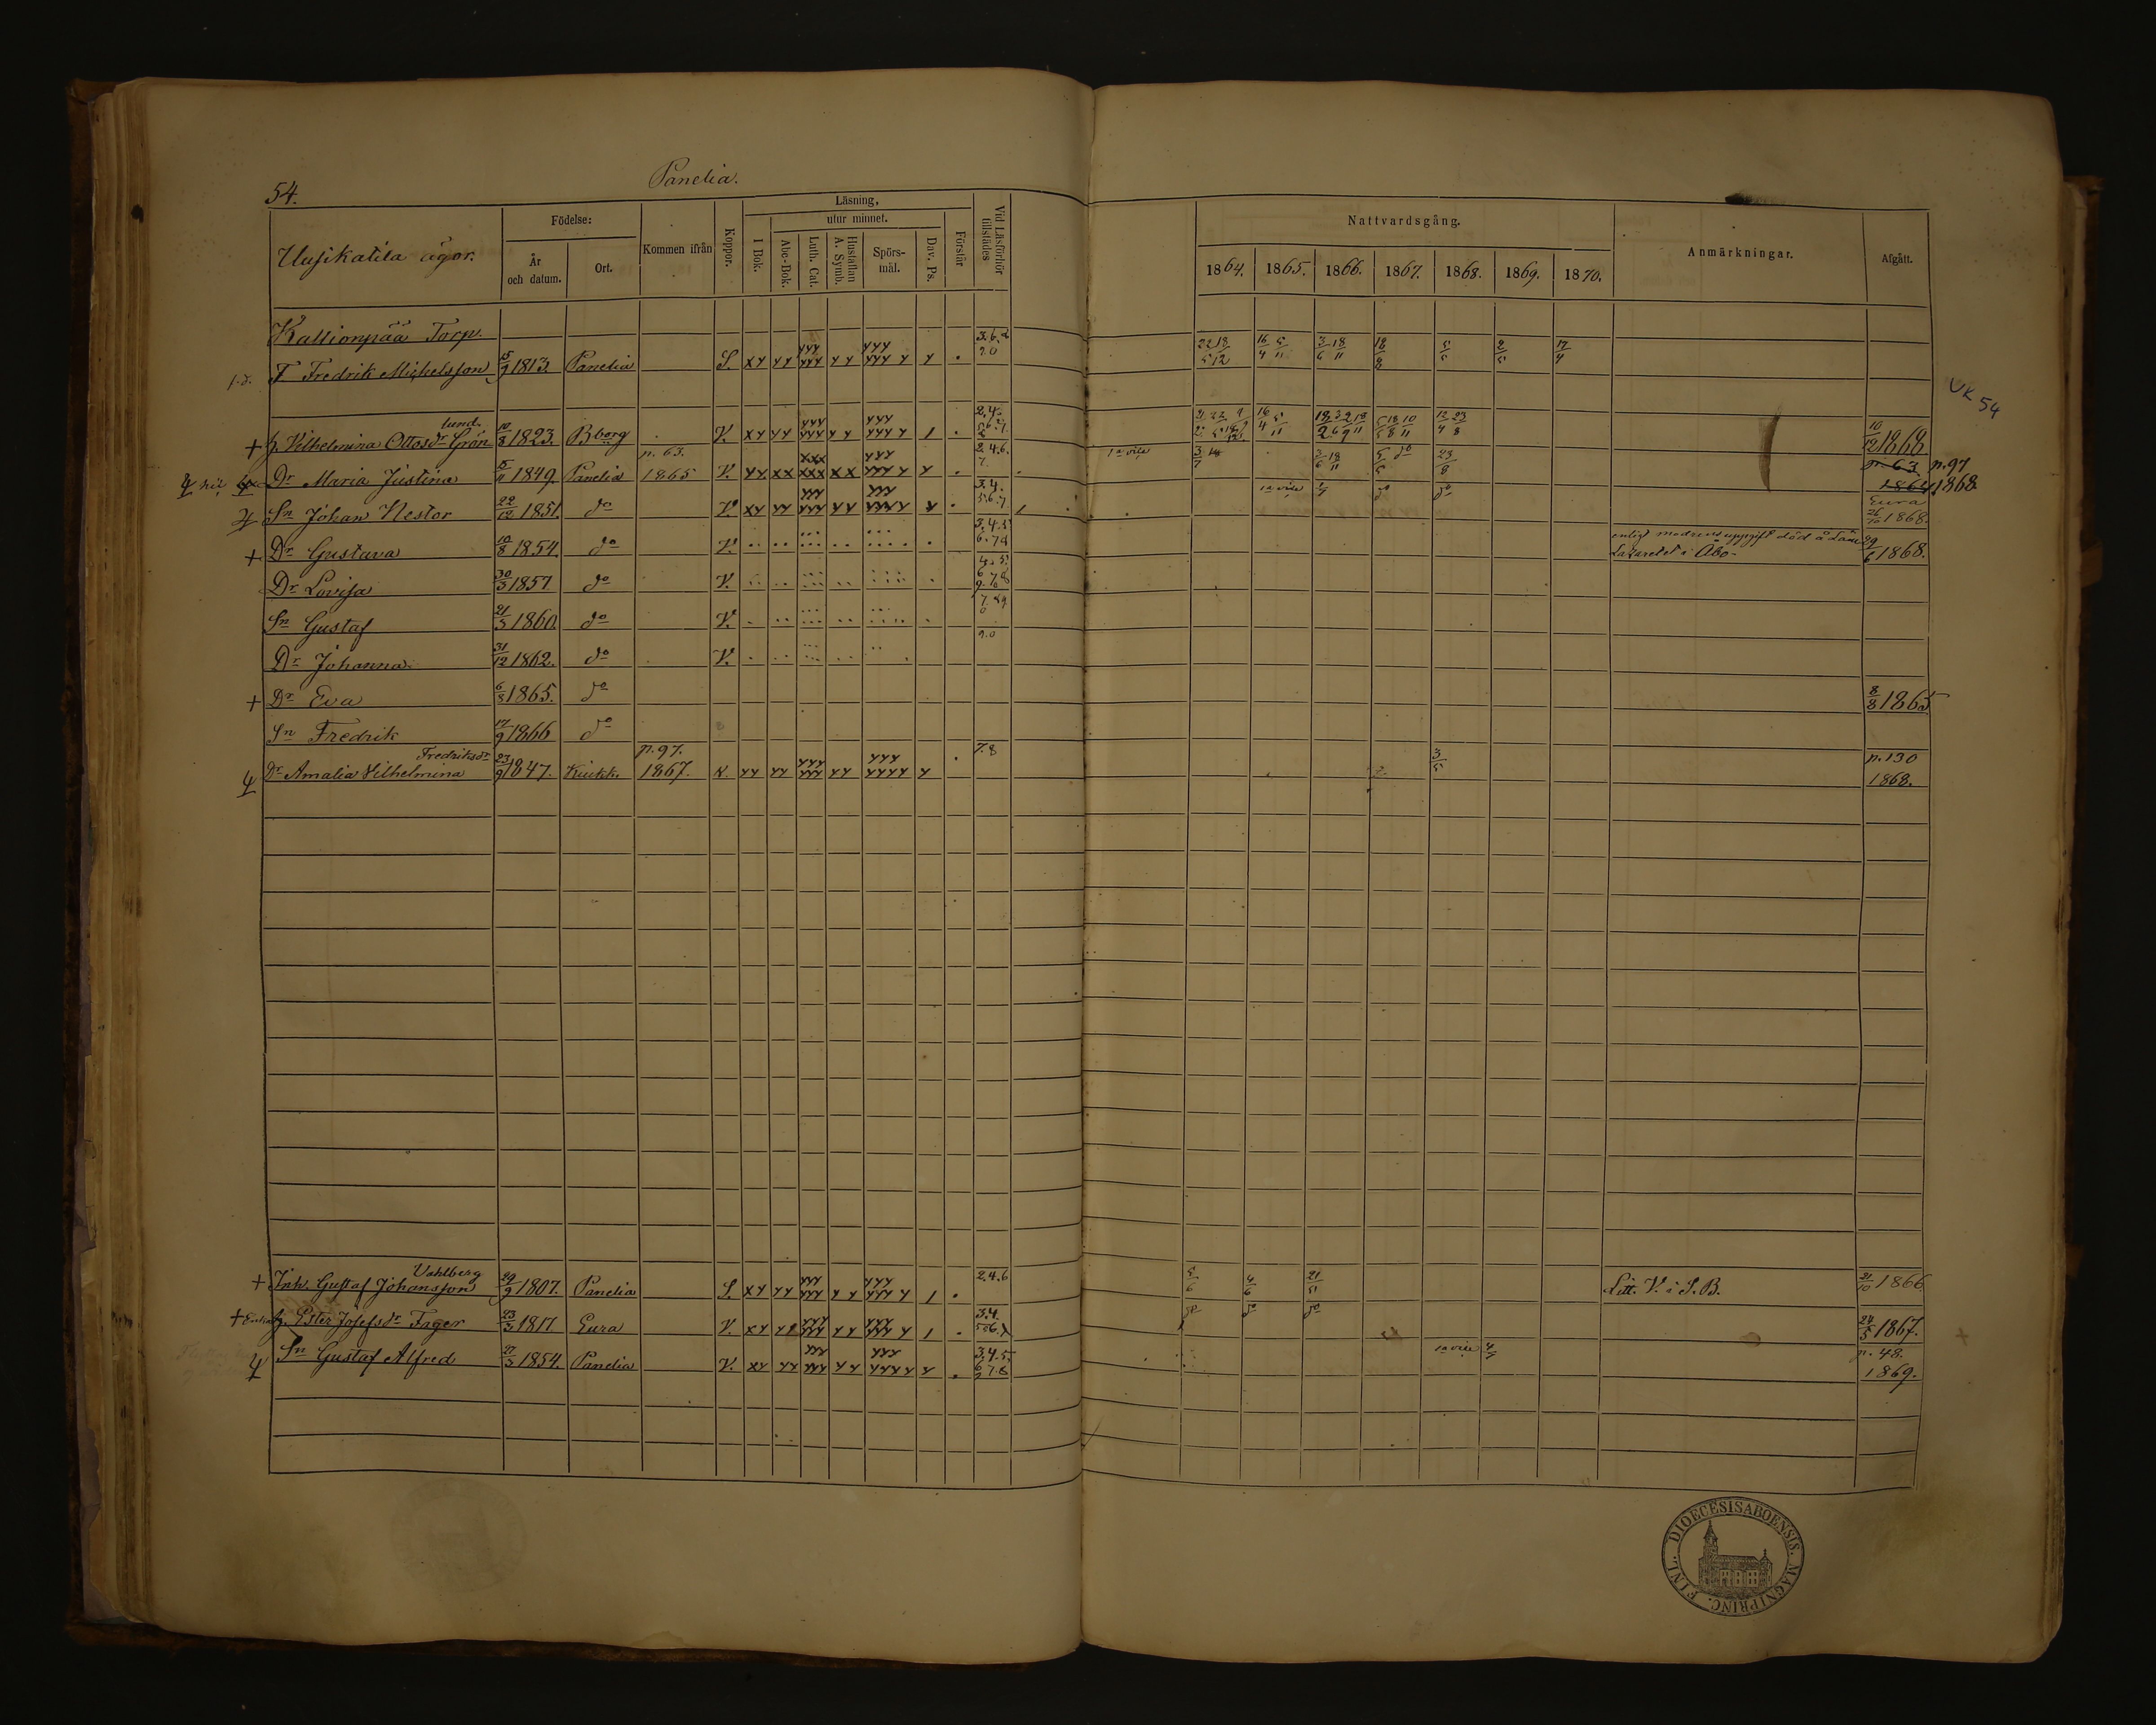 54.
Panelia.
Uusikatila ägor.
Födelse:
År och datum.
Ort.
Kommen ifrån
Koppor.
Läsning,
utur minnet.
I Bok.
Abc-Bok.
Luth. Cat.
Hustaflan A. Symb.
Spörs-mål.
Dav. Ps.
Förstår
Vid Läsförhör tillstädes
Nattvardsgång.
1864. 1865. 1866. 1867. 1868. 1869. 1870.
Anmärkningar.
Afgått.
UK 54
Kallionpää Torp. 3.6.
T. Fredrik Michelsson 15/9 1813. Panelia S. xy yy yyy yyy yy yyy yyy y y . 9.0 22/5 18/12 16/4 5/11 3/6 18/11 18/8 5/5 2/5 17/4
+ h. Vilhelmina Ottosdr Grönlund. 10/8 1823. Bborg V. xy yy yyy yyy yy yyy yyy y 1 . 10/12 1868
Dr Maria Justina 5/11 1849. Panelia n. 63. 1865 V. yy xx xxx xxx xx yyy yyy y y . 2.4.6. 7. 1a vice 3/7 3/6 18/11 5/5 do 23/8 n. 63 1864 n. 97 1868
Sn Johan Nestor 22/12 1851. do V. xy yy yyy yyy yy yyy yyy y y . 3.4. 5.6.7 1a vice do do Eura 26/10 1868.
+ Dr Gustava 10/8 1854. do V. 3.4.5 6.7.8 enligt modrens uppgift död å Läne Lazarettet i Åbo- 29/6 1868.
Dr Lovisa 30/3 1857. do V. 4.5. 6.7.8 9.
Sn Gustaf 21/3 1860. do V. 7.8.9 0
Dr Johanna 31/12 1862. do V. 9.0
+ Dr Eva 6/8 1865. do 8/8 1865
Sn Fredrik 17/9 1866 do
Dr Amalia Vilhelmina Fredriksdr 23/9 1847. Kiukk. n. 97. 1867. V. yy yy yyy yyy yy yyy yyyy y . 7.8 3/5 n. 130 1868.
+ Inh. Gustaf Johansson Vahlberg 29/9 1807. Panelia S. xy yy yyy yyy yy yyy yyy y 1 . 2.4.6 5/6 4/6 21/5 Litt. V. i S.B. 21/10 1866
+ Enka h. Ester Josefsdr Fager 23/3 1817. Eura V. xy yy yyy yyy yy yyy yyy y 1 . 3.4. 5.6.7 do do do 24/5 1867.
Sn Gustaf Alfred 27/3 1854. Panelia V. xy yy yyy yyy yy yyy yyyy y . 3.4.5. 6.7.8 9 1a vice 4/7 n. 48. 1869.
FINL. DIOECESIS ABOENSIS. MAGNI PRINC.